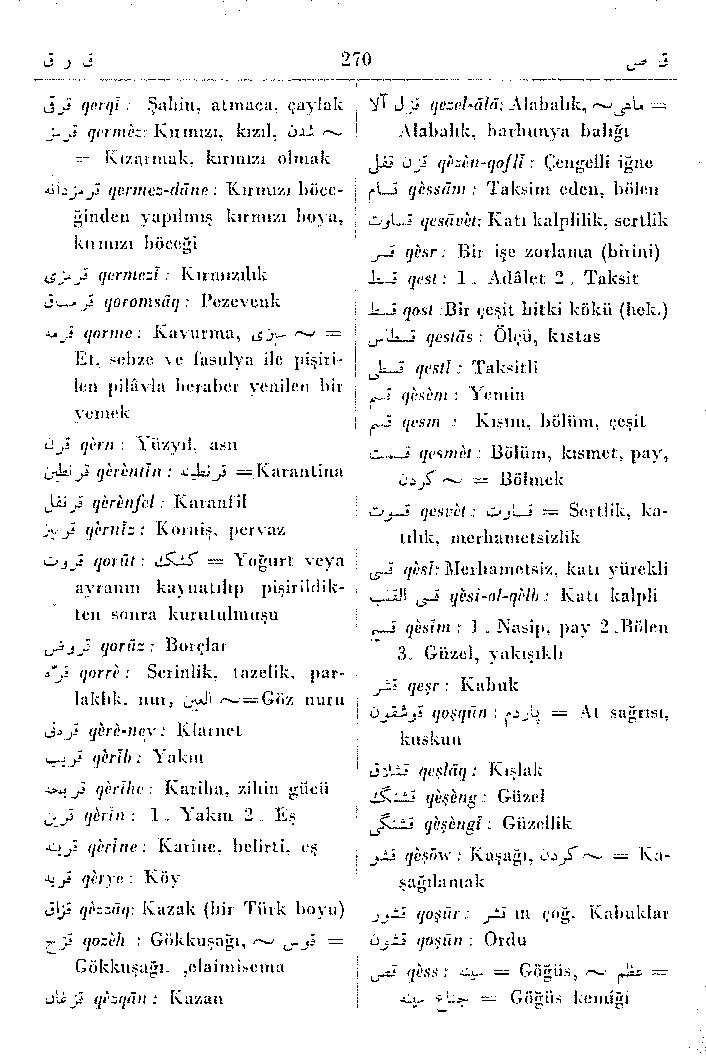 ق ر ق 270 ق ص
قرقی qerqī : Şahin, atmaca, çaylak
قرمز qermèz: Kırmızı, kızıl, شدن ~
= Kızarmak, kırmızı olmak
قرمزدانه qermez-dāne : Kırmızı böce-
ğinden yapılmış kırmızı boya,
kırmızı böceği
قرمزی qermezī : Kırmızılık
قرمساق qoromsāq : Pezevenk
قرمه qorme : Kavurma, سبزی ~ =
Et, sebze ve fasulya ile pişiri-
len pilâvla beraber yenilen bir
yemek
قرن qèrn : Yüzyıl, asır
قرنطین qèrèntīn : قرنطینه = Karantina
قرنفل qèrènfel : Karanfil
قرنیز qèrnīz : Korniş, pervaz
قروت qorūt : کشک = Yoğurt veya
ayranın kaynatılıp pişirildik-
ten sonra kurutulmuşu
قروض qorūz : Borçlar
قره qorrè : Serinlik, tazelik, par-
laklık, nur, العین ~ = Göz nuru
قره‌نی qèrè-ney : Klarnet
قریب qèrīb : Yakın
قریحه qèrīhe : Kariha, zihin gücü
قرین qèrin : 1. Yakın 2. Eş
قرینه qèrīne : Karine, belirti, eş
قریه qèrye : Köy
قزاق qèzzāq: Kazak (bir Türk boyu)
قزح qozèh : Gökkuşağı, ~ قوس =
Gökkuşağı. ,elaimisema
قزغان qèzqān : Kazan
قزل آلا qezel-ālā: Alabalık, ماهی ~ =
Alabalık, barbunya balığı
قزن قفلی qèzèn-qoflī : Çengelli iğne
قسام qèssām : Taksim eden, bölen
قساوت qesāvèt: Katı kalplilik, sertlik
قسر qèsr : Bir işe zorlama (birini)
قسط qest : 1. Adâlet 2. Taksit
قسط qost :Bir çeşit bitki kökü (hek.)
قسطاس qestās : Ölçü, kıstas
قسطی qestī : Taksitli
قسم qèsèm : Yemin
قسم qesm : Kısım, bölüm, çeşit
قسمت qesmèt : Bölüm, kısmet, pay,
کردن ~ = Bölmek
قسوت qesvèt : قساوت = Sertlik, ka-
tılık, merhametsizlik
قسی qèsī: Merhametsiz, katı yürekli
قسی القلب qèsi-ol-qèlb : Katı kalpli
قسیم qèsīm : 1. Nasip, pay 2.Bölen
3. Güzel, yakışıklı
قشر qeşr : Kabuk
قوشقون qoşqūn : پاردم = At sağrısı,
kuskun
قشلاق qeşlāq : Kışlak
قشنگ qèşèng : Güzel
قشنگی qèşèngī : Güzellik
قشو qèşōw : Kaşağı, کردن ~ = Ka-
şağılamak
قشور qoşūr : قشر ın çoğ. Kabuklar
قشون qoşūn : Ordu
قص qèss : سینه = Göğüs, ~ عظم =
جناغ سینه = Göğüs kemiği